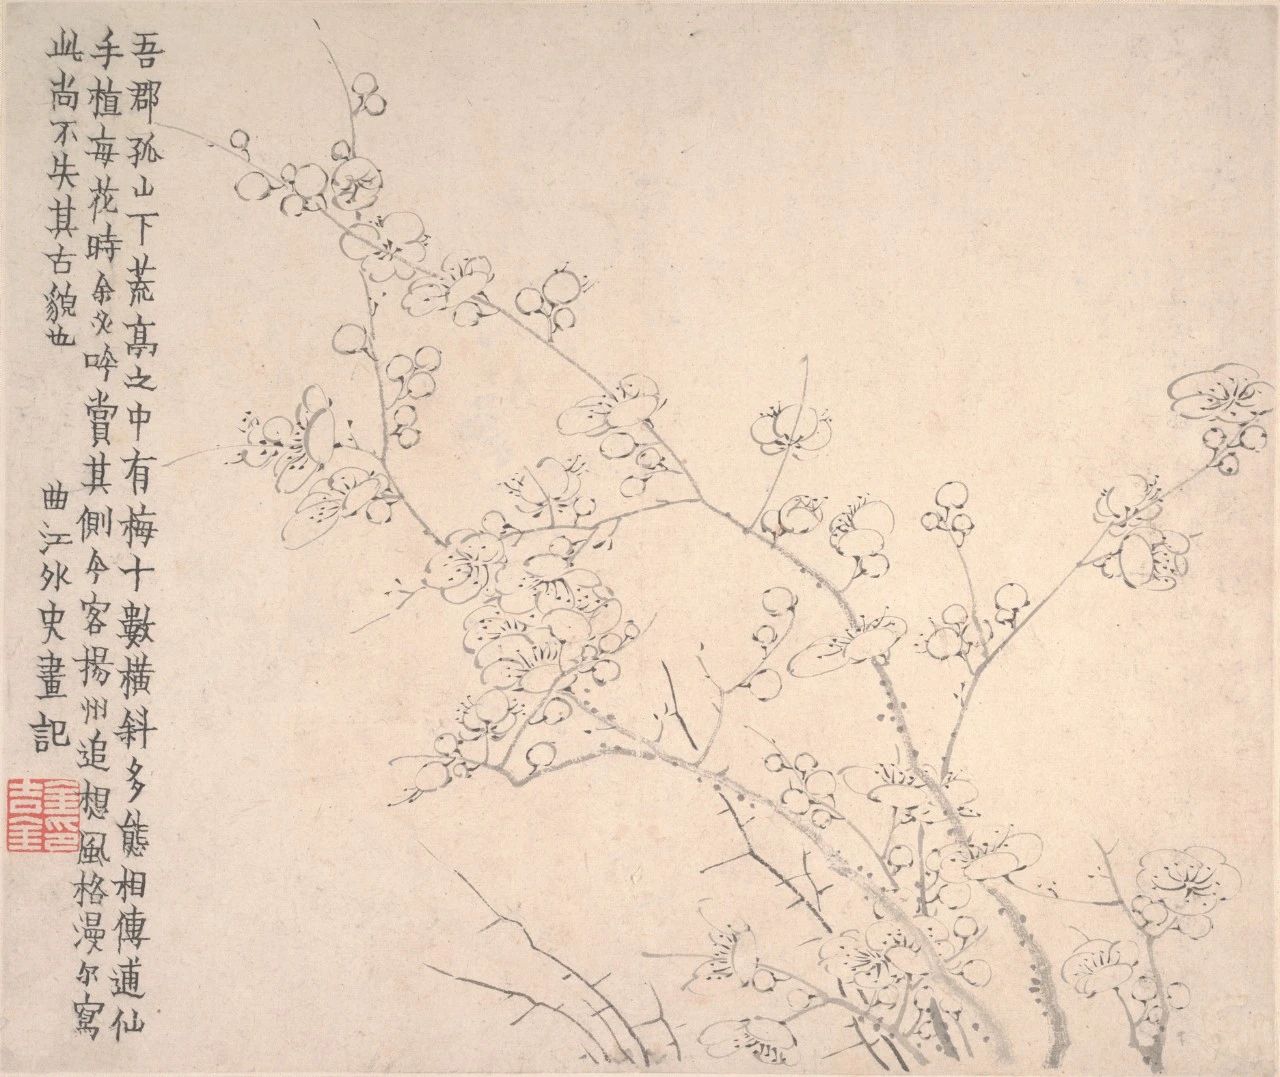 吾郡孤山下荒亭之中有梅十數橫斜多態相傳逋仙
手植每花時余必吟賞其側今客揚州追想風格漫尔寫
此尚不失其古貌也
曲江外史畫記
金吉金印